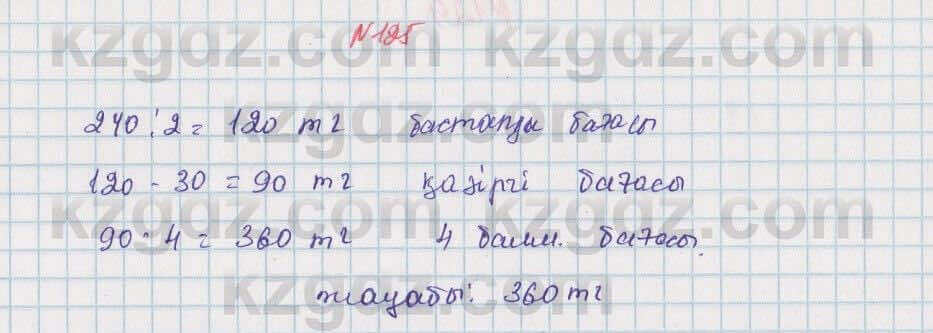 N125
240 : 2 = 120 тг бастапқы бағасы
120 - 30 = 90 тг қазіргі бағасы
90 · 4 = 360 тг 4 балм. бағасы.
жауабы: 360 тг
kzgdz.com kzgdz.com
kzgdz.com kzgdz.com
kzgdz.com kzgdz.com